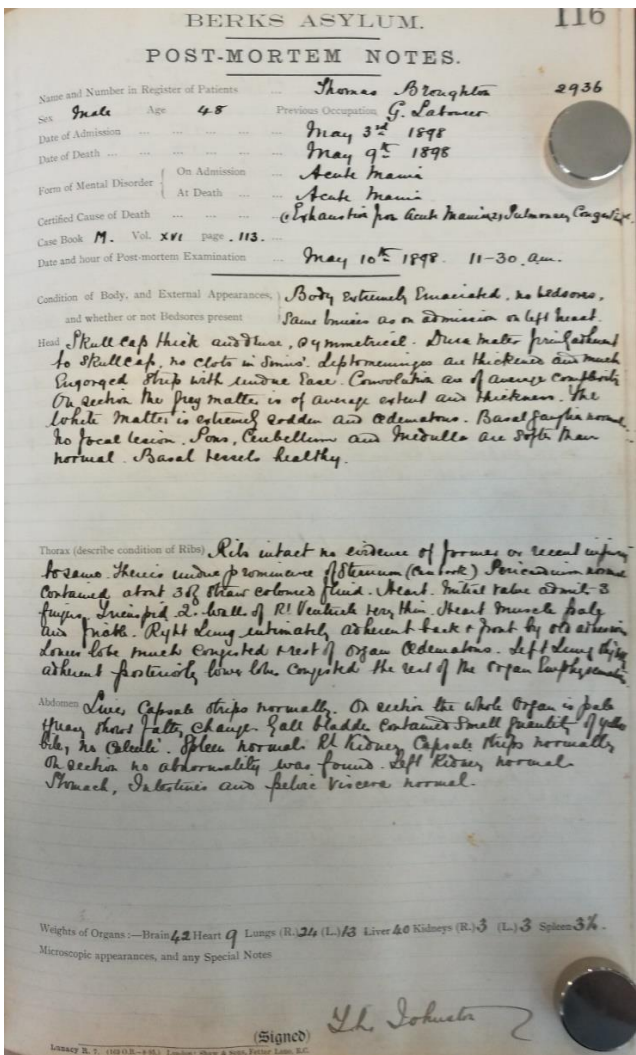 116
BERKS ASYLUM.
POST-MORTEM NOTES.
Name and Number in Register of Patients ... Thomas Broughton 2936
Sex Male Age 48 Previous Occupation G. Labourer
Date of Admission ... ... ... ... ... May 3rd 1898
Date of Death ... ... ... ... ... May 9th 1898
Form of Mental Disorder { On Admission ... Acute Mania
At Death ... ... Acute Mania
Certified Cause of Death ... ... ... ... Exhaustion from Acute Mania Pulmonary
Case Book M. Vol. XVI page . 113. ...
Date and hour of Post-mortem Examination ... May 10th 1898. 11-30. a.m.
Condition of Body, and External Appearances, } Body Extremely Emaciated, no bedsores,
and whether or not Bedsores present Same bruises as on admission on left
Head Skull cap thick and dense, symmetrical. Dura mater adherent
to skull cap, no clots in Sinus'. Leptomeninges are thickened and much
Engorged Strip with undue Ease. Convolution are of average complexity
On section the grey matter is of average extent and thickness. The
White Matter is extremely sodden and oedematous. Basal ganglia normal
No focal lesion. Pons, Cerebellum and Medulla are softer than
normal. Basal vessels healthy.
Thorax (describe condition of Ribs) Ribs intact no evidence of former or recent injury
to same. There is undue prominence of Sternum Pericardium normal
contained about 3 of straw coloured fluid. Heart. Mitral valve admits 3
fingers, Tricuspid 2. walls of Rt Ventricle very thin. Heart Muscle pale
and friable. Right Lung intimately adherent back & front by old adhesions
Lower lobe much congested & rest of organ Oedematous. Left Lung
adherent posteriorly lower lobe congested the rest of the organ Emphysematous
Abdomen Liver Capsule strips normally. On section the whole organ is pale
greasy shows fatty change. Gall bladder contained small quantity of yellow
bile, no Calculi. Spleen normal. Rt Kidney Capsule strips normally
On section no abnormality was found. Left Kidney normal
Stomach, Intestines and pelvic viscera normal.
Weights of Organs :—Brain 42 Heart 9 Lungs (R.) 24 (L.) 13 Liver 40 Kidneys (R.) 3 (L.) 3 Spleen 3½.
Microscopic appearances, and any Special Notes
(Signed) Johnston
Lunacy R. 7.